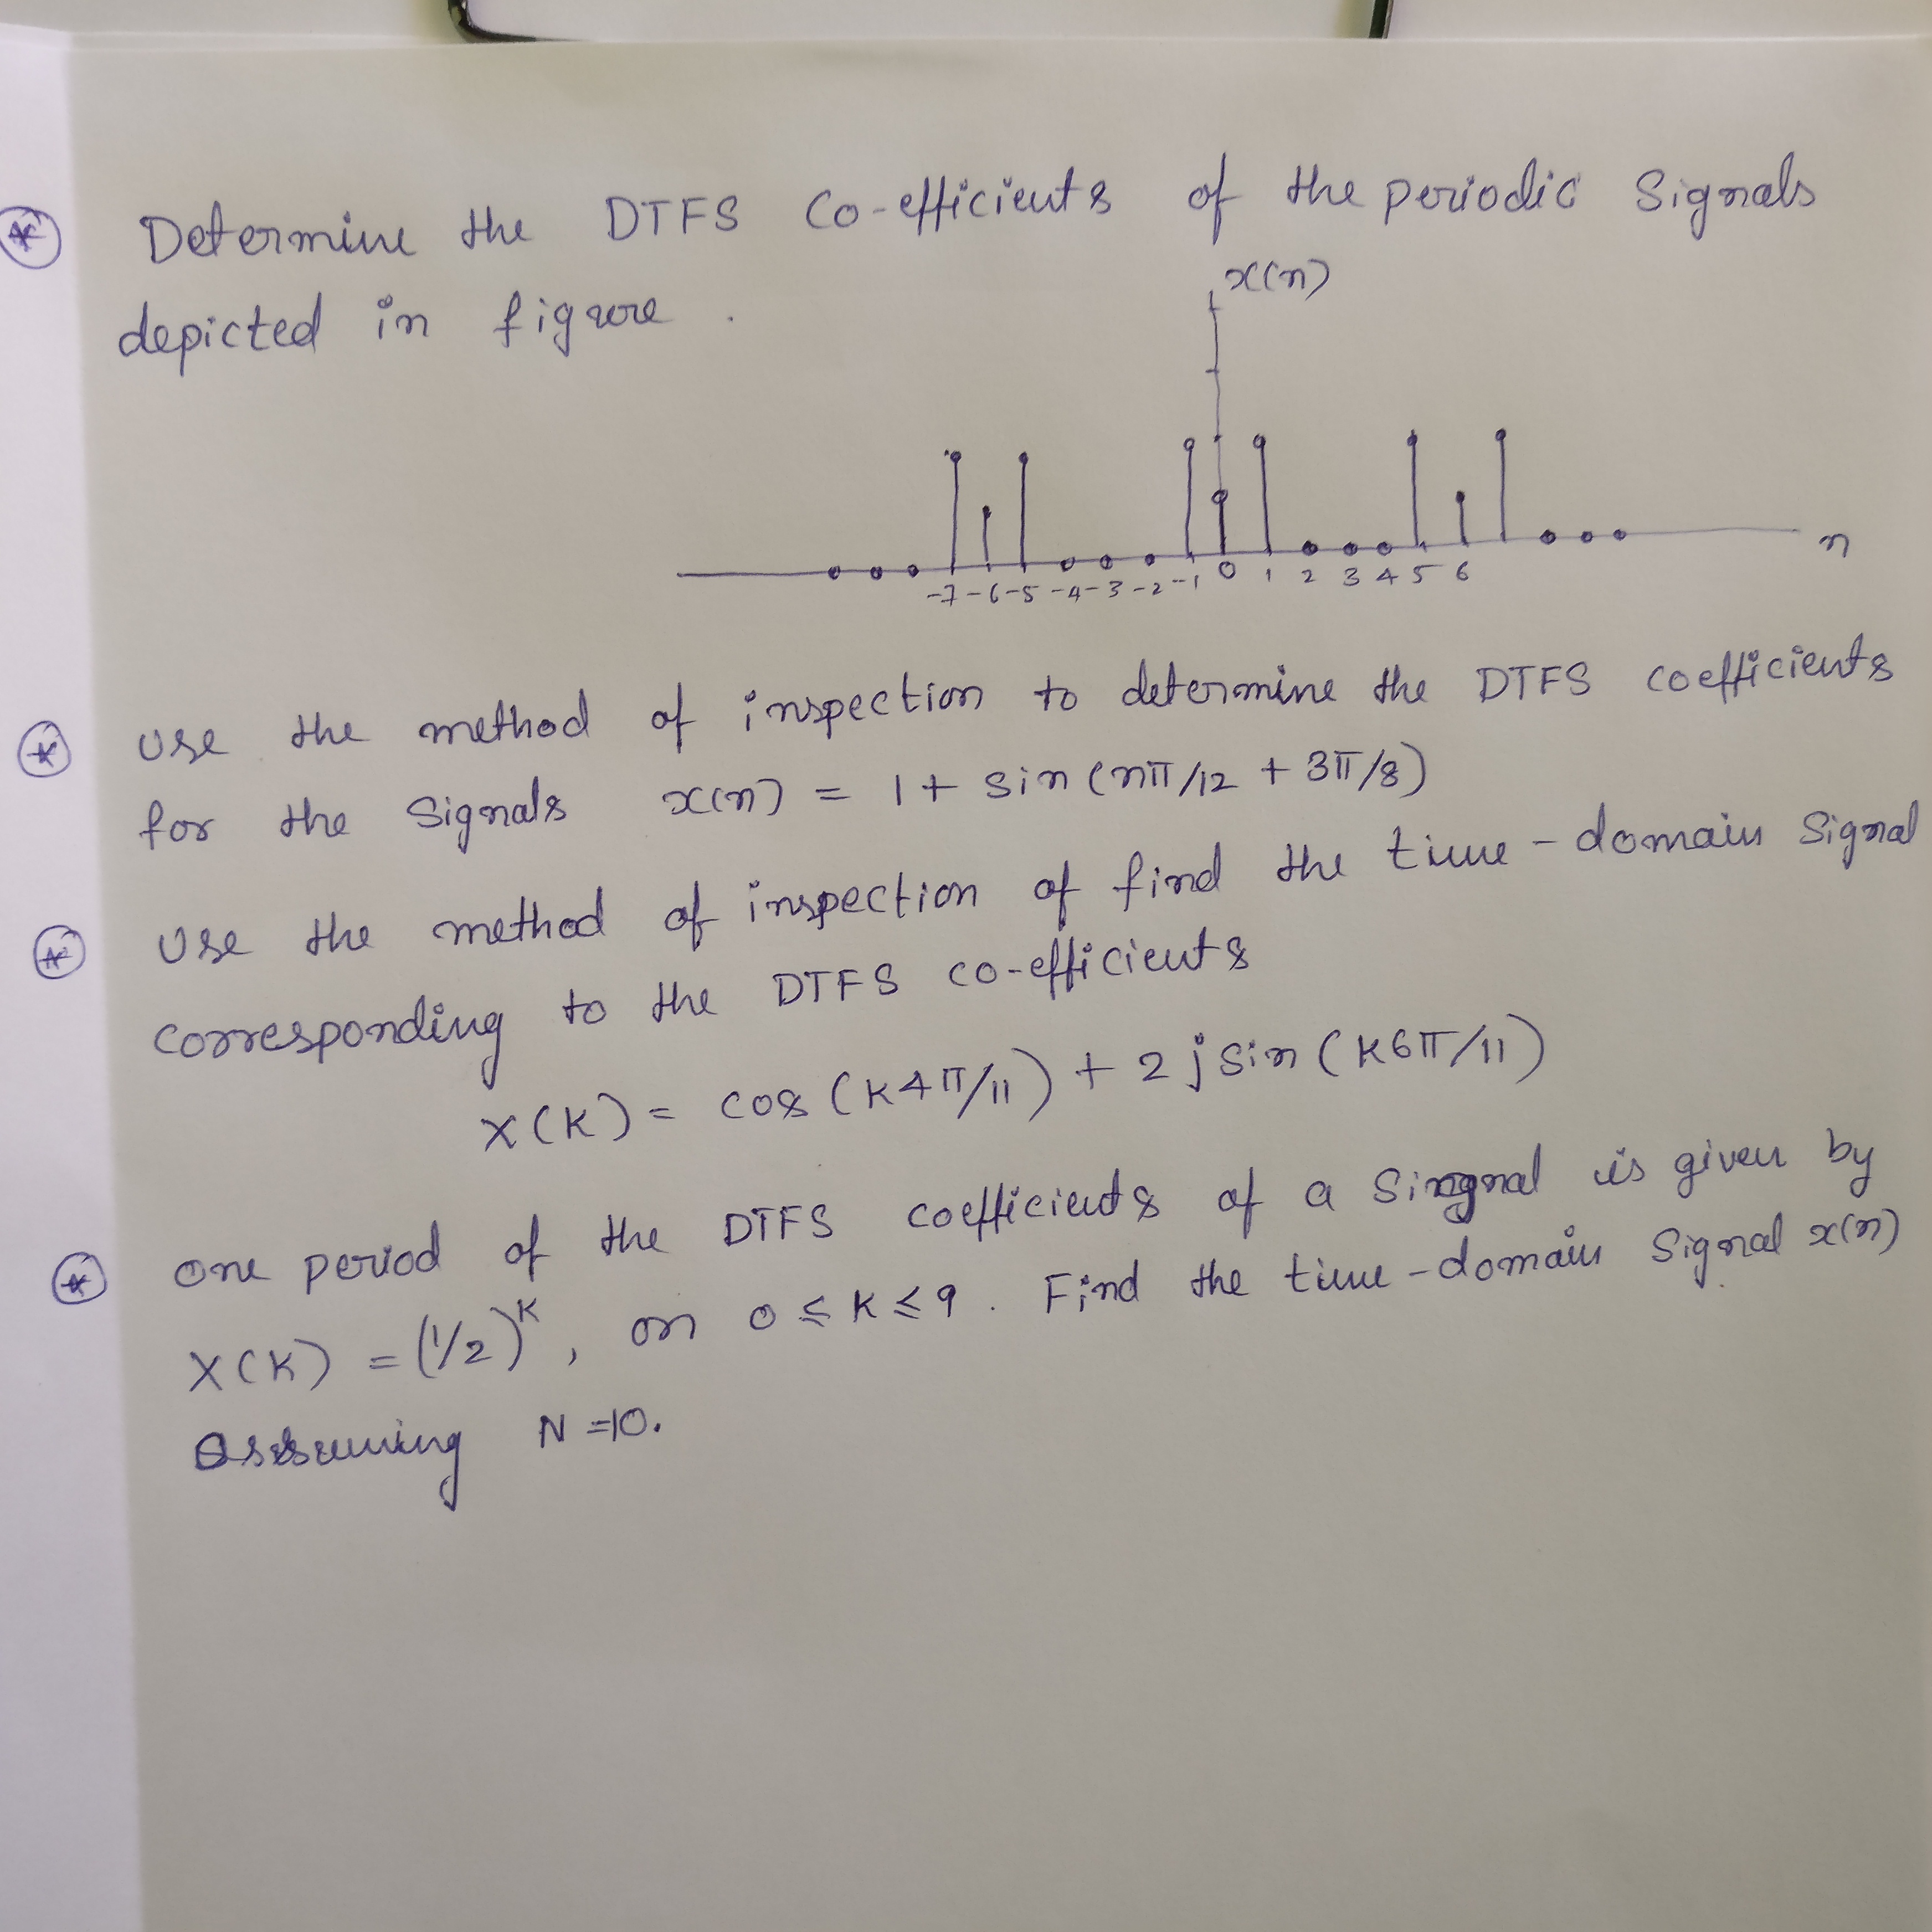 Determine the DTFS Co-efficients of the periodic Signals
depicted in figure .
x(n)
n
-7 -6 -5 -4 -3 -2 -1 0 1 2 3 4 5 6
Use the method of inspection to determine the DTFS coefficients
for the Signals x(n) = 1 + sin (nπ/12 + 3π/8)
Use the method of inspection of find the time - domain Signal
corresponding to the DTFS co-efficients
X(K) = cos (K4π/11) + 2 j sin (K6π/11)
one period of the DTFS coefficients of a Singnal is given by
X(K) = (1/2)^K, on 0 ≤ K ≤ 9. Find the time - domain Signal x(n)
assuming N =10.